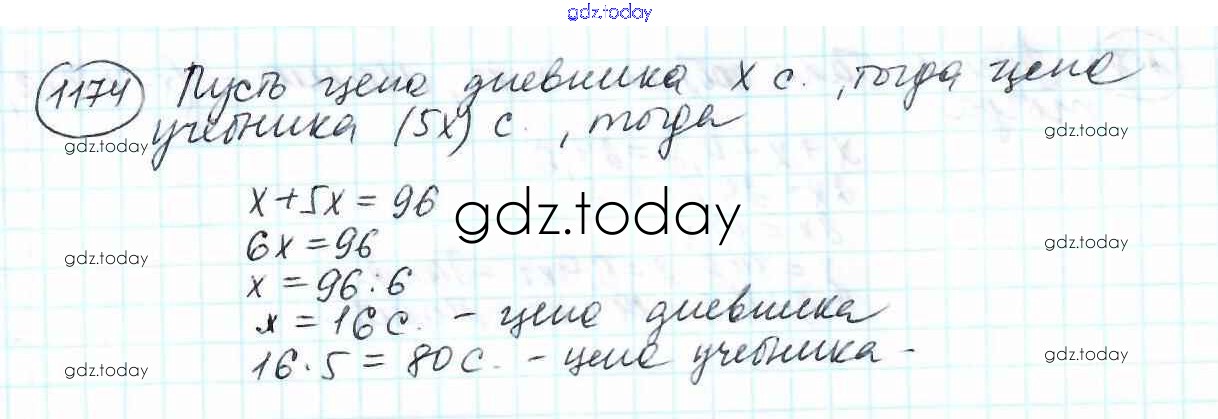 gdz.today
1174 Пусть цена дневника x с., тогда цена
учебника (5x) с., тогда
gdz.today gdz.today
x+5x=96
gdz.today
6x=96
gdz.today gdz.today
x=96:6
x=16 с. - цена дневника
16·5=80 с. - цена учебника -
gdz.today gdz.today